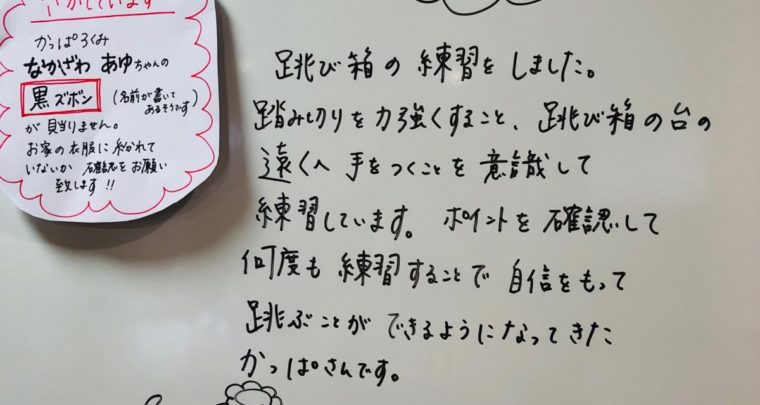 さがしています
かっぱろくみ
なかざわ あゆちゃんの
黒ズボン (名前が書いてあるそうです)
が見当りません。
お家の衣服に紛れて
いないか 確認をお願い
致します!!
跳び箱の練習をしました。
踏み切りを力強くすること、跳び箱の台の
遠くへ手をつくことを意識して
練習しています。ポイントを確認して
何度も練習することで自信をもって
跳ぶことができるようになってきた
かっぱさんです。